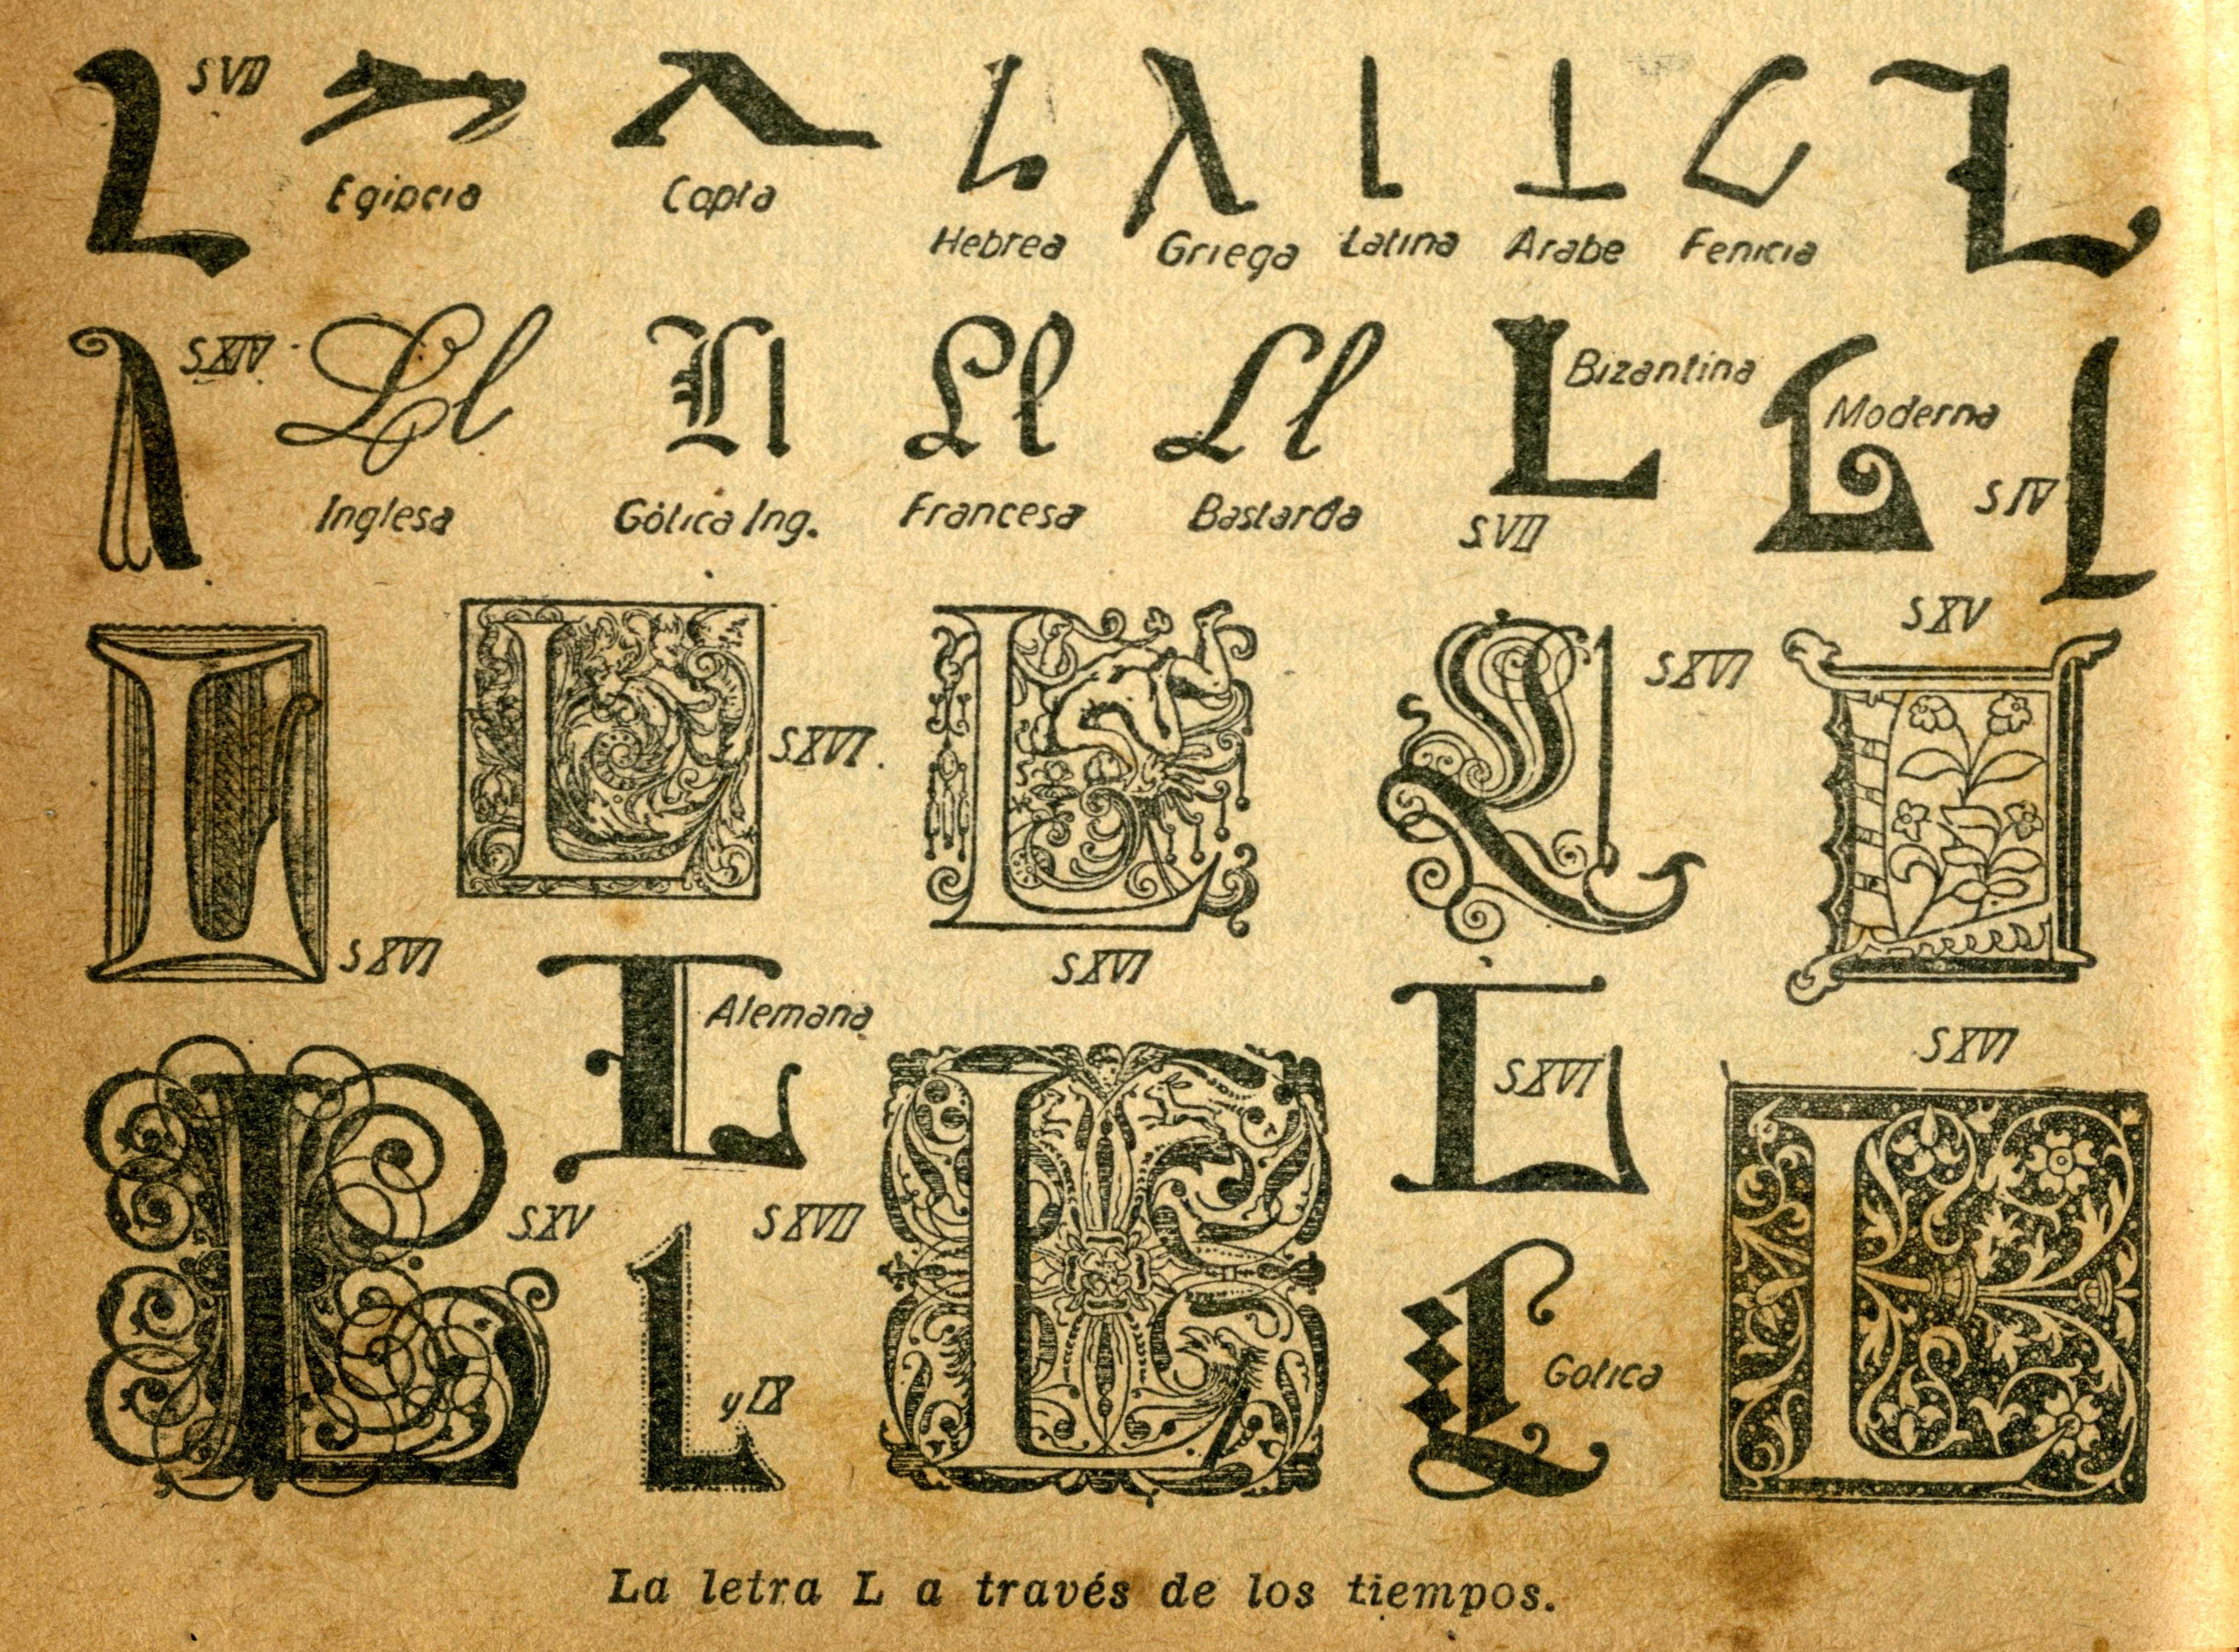 L S VII
Egipcia
Copta
Hebrea
Griega
Latina
Arabe
Fenicia
L
S XIV
Ll
Inglesa
Ll
Gótica Ing.
Ll
Francesa
Ll
Bastarda
L Bizantina
S.VII
L Moderna
S IV L
L S XVI
L S XVI.
L
S XVI
L S XVI
S XV
L
L Alemana
L S XVI
S XVI
L
L S XV
S XVII
L y IX
L
L Gotica
La letra L a través de los tiempos.